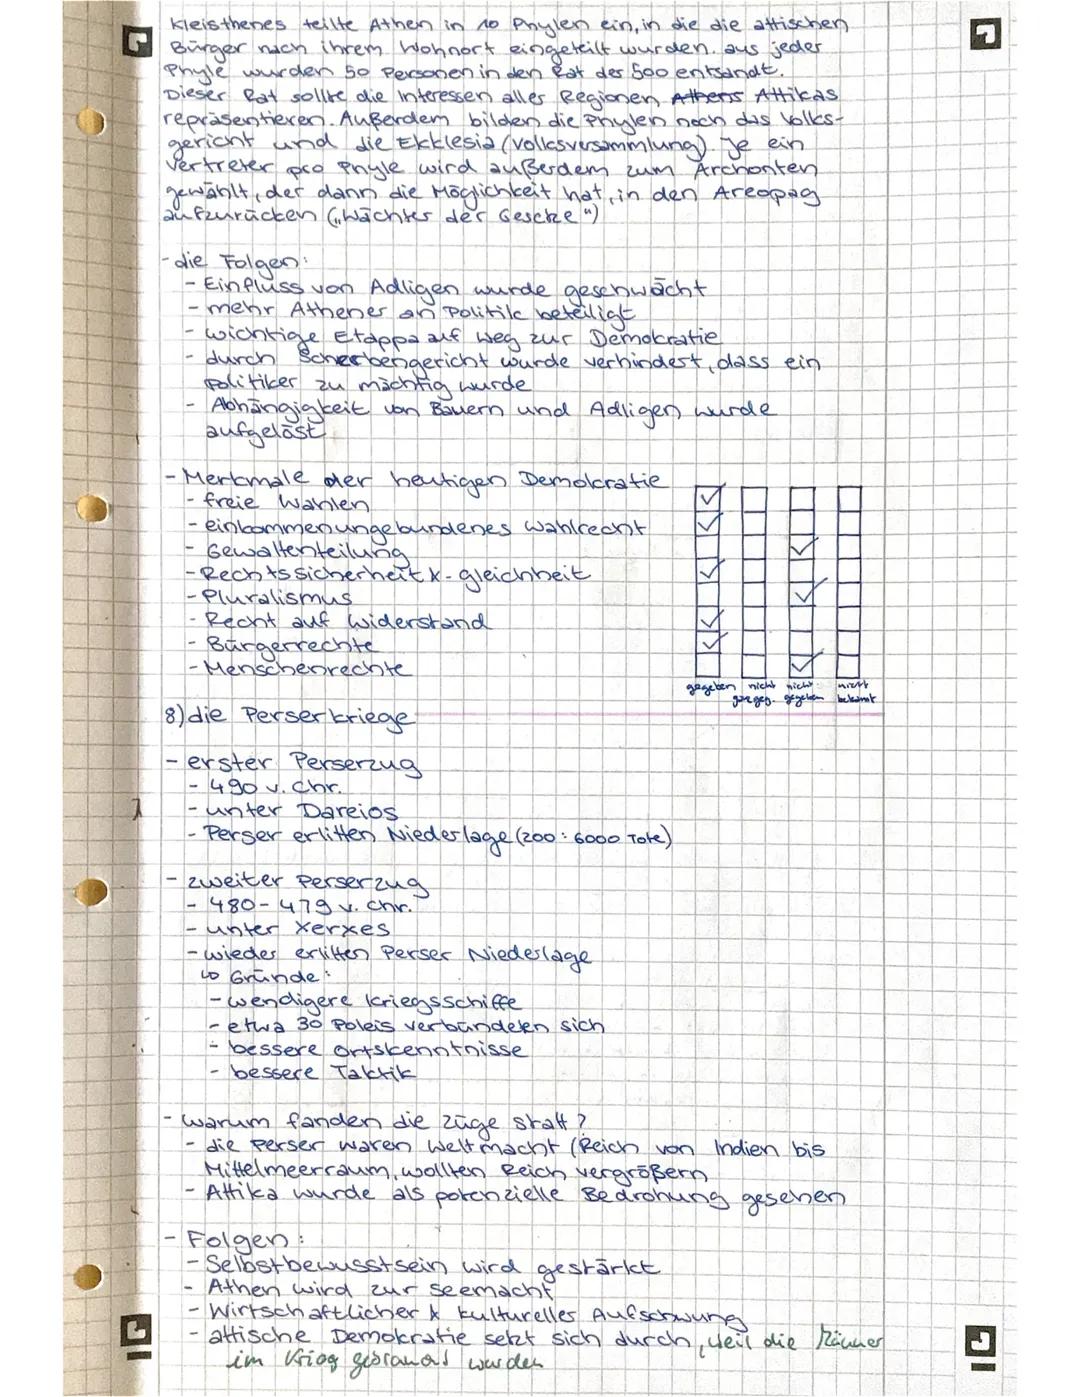 Kleisthenes teilte Athen in 10 Phylen ein, in die die attischen
Bürger nach ihrem Wohnort eingeteilt wurden. aus jeder
Phyle wurden 50 Personen in den Rat der 500 entsandt.
Dieser Rat sollte die Interessen aller Regionen Athens Attikas
repräsentieren. Außerdem bilden die Phylen noch das Volks-
gericht und die Ekklesia (Volksversammlung). Je ein
Vertreter pro Phyle wird außerdem zum Archonten
gewählt, der dann die Möglichkeit hat, in den Areopag
aufzurücken („Wächter der Gesetze")
- die Folgen:
- Einfluss von Adligen wurde geschwächt
- mehr Athener an Politik beteiligt
- wichtige Etappe auf Weg zur Demokratie
- durch Scherbengericht wurde verhindert, dass ein
Politiker zu mächtig wurde
- Abhängigkeit von Bauern und Adligen wurde
aufgelöst
- Merkmale der heutigen Demokratie
- freie Wahlen
- einkommenungebundenes Wahlrecht
- Gewaltenteilung
- Rechtssicherheit & -gleichheit
- Pluralismus
- Recht auf Widerstand
- Bürgerrechte
- Menschenrechte
gegeben nicht nicht nicht
gegeben bekannt
8) die Perserkriege
- erster Perserzug
- 490 v. Chr.
- unter Dareios
- Perser erlitten Niederlage (200 : 6000 Tote)
- zweiter Perserzug
- 480-479 v. Chr.
- unter Xerxes
- wieder erlitten Perser Niederlage
↳ Gründe:
- wendigere Kriegsschiffe
- etwa 30 Poleis verbündeten sich
- bessere Ortskenntnisse
- bessere Taktik
- warum fanden die Züge statt?
- die Perser waren Weltmacht (Reich von Indien bis
Mittelmeerraum, wollten Reich vergrößern
- Attika wurde als potenzielle Bedrohung gesehen
- Folgen:
- Selbstbewusstsein wird gestärkt
- Athen wird zur Seemacht
- Wirtschaftlicher & kultureller Aufschwung
- attische Demokratie setzt sich durch, weil die Männer
im Krieg gebraucht wurden